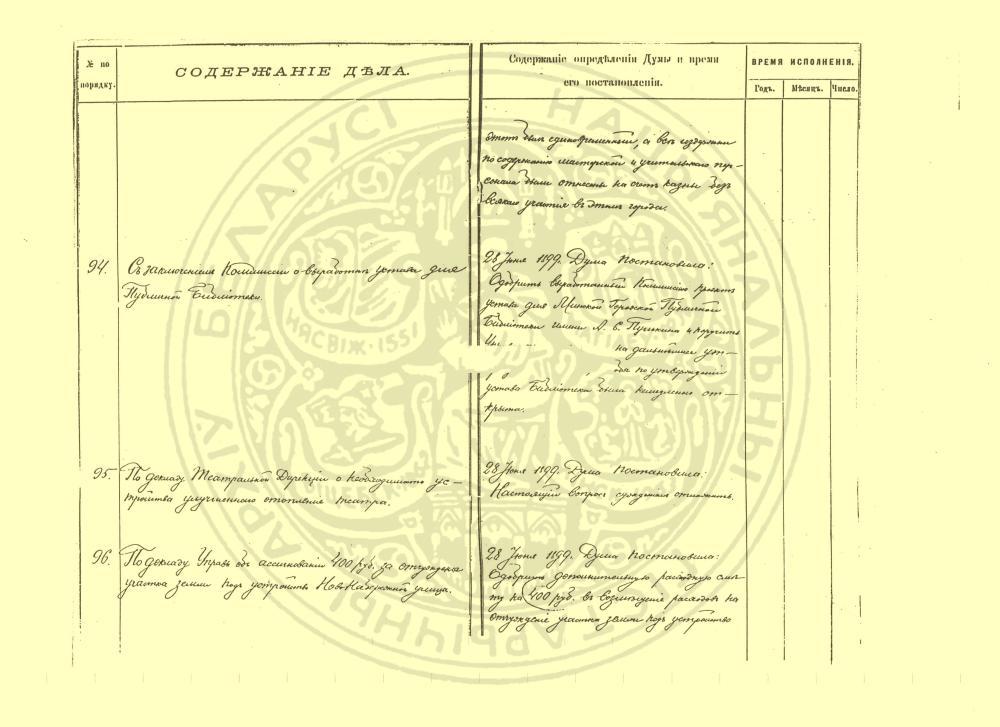 № по порядку.
СОДЕРЖАНІЕ ДѢЛА.
Содержаніе опредѣленія Думы и время
его постановленія.
ВРЕМЯ ИСПОЛНЕНІЯ.
Годъ. Мѣсяцъ. Число.
этотъ былъ единовременный, а всѣ издержки
по содержанію мастерской и учительскаго пер-
сонала были отнесены на счетъ казны безъ
всякаго участія въ этомъ города.
94. Съ заключеніемъ Коммиссіи о выработкѣ устава для
Публичной Библіотеки.
28 Іюня 1899. Дума постановила:
Одобрить выработанный Коммиссіею проектъ
устава для Минской Городской Публичной
Библіотеки имени А. С. Пушкина и поручить
на дальнѣйшее ут-
по утвержденіи
устава Библіотека была немедленно от-
крыта.
95. По докладу Театральной Дирекціи о необходимости ус-
тройства улучшеннаго отопленія театра.
28 Іюня 1899. Дума постановила:
Настоящій вопросъ сужденіемъ отложить.
96. По докладу Управы объ ассигнованіи 400 руб. за отчужденіе
участка земли подъ устройство Ново-Набережной улицы.
28 Іюня 1899. Дума постановила:
Одобрить дополнительную расходную смѣ-
ту на 400 руб. въ возмѣщеніе расходовъ на
отчужденіе участка земли подъ устройство
НЯСВІЖ·1551
БЕЛАРУСІ
НАЦЫЯНАЛЬНЫ
ГІСТАРЫЧНЫ
АРХІЎ